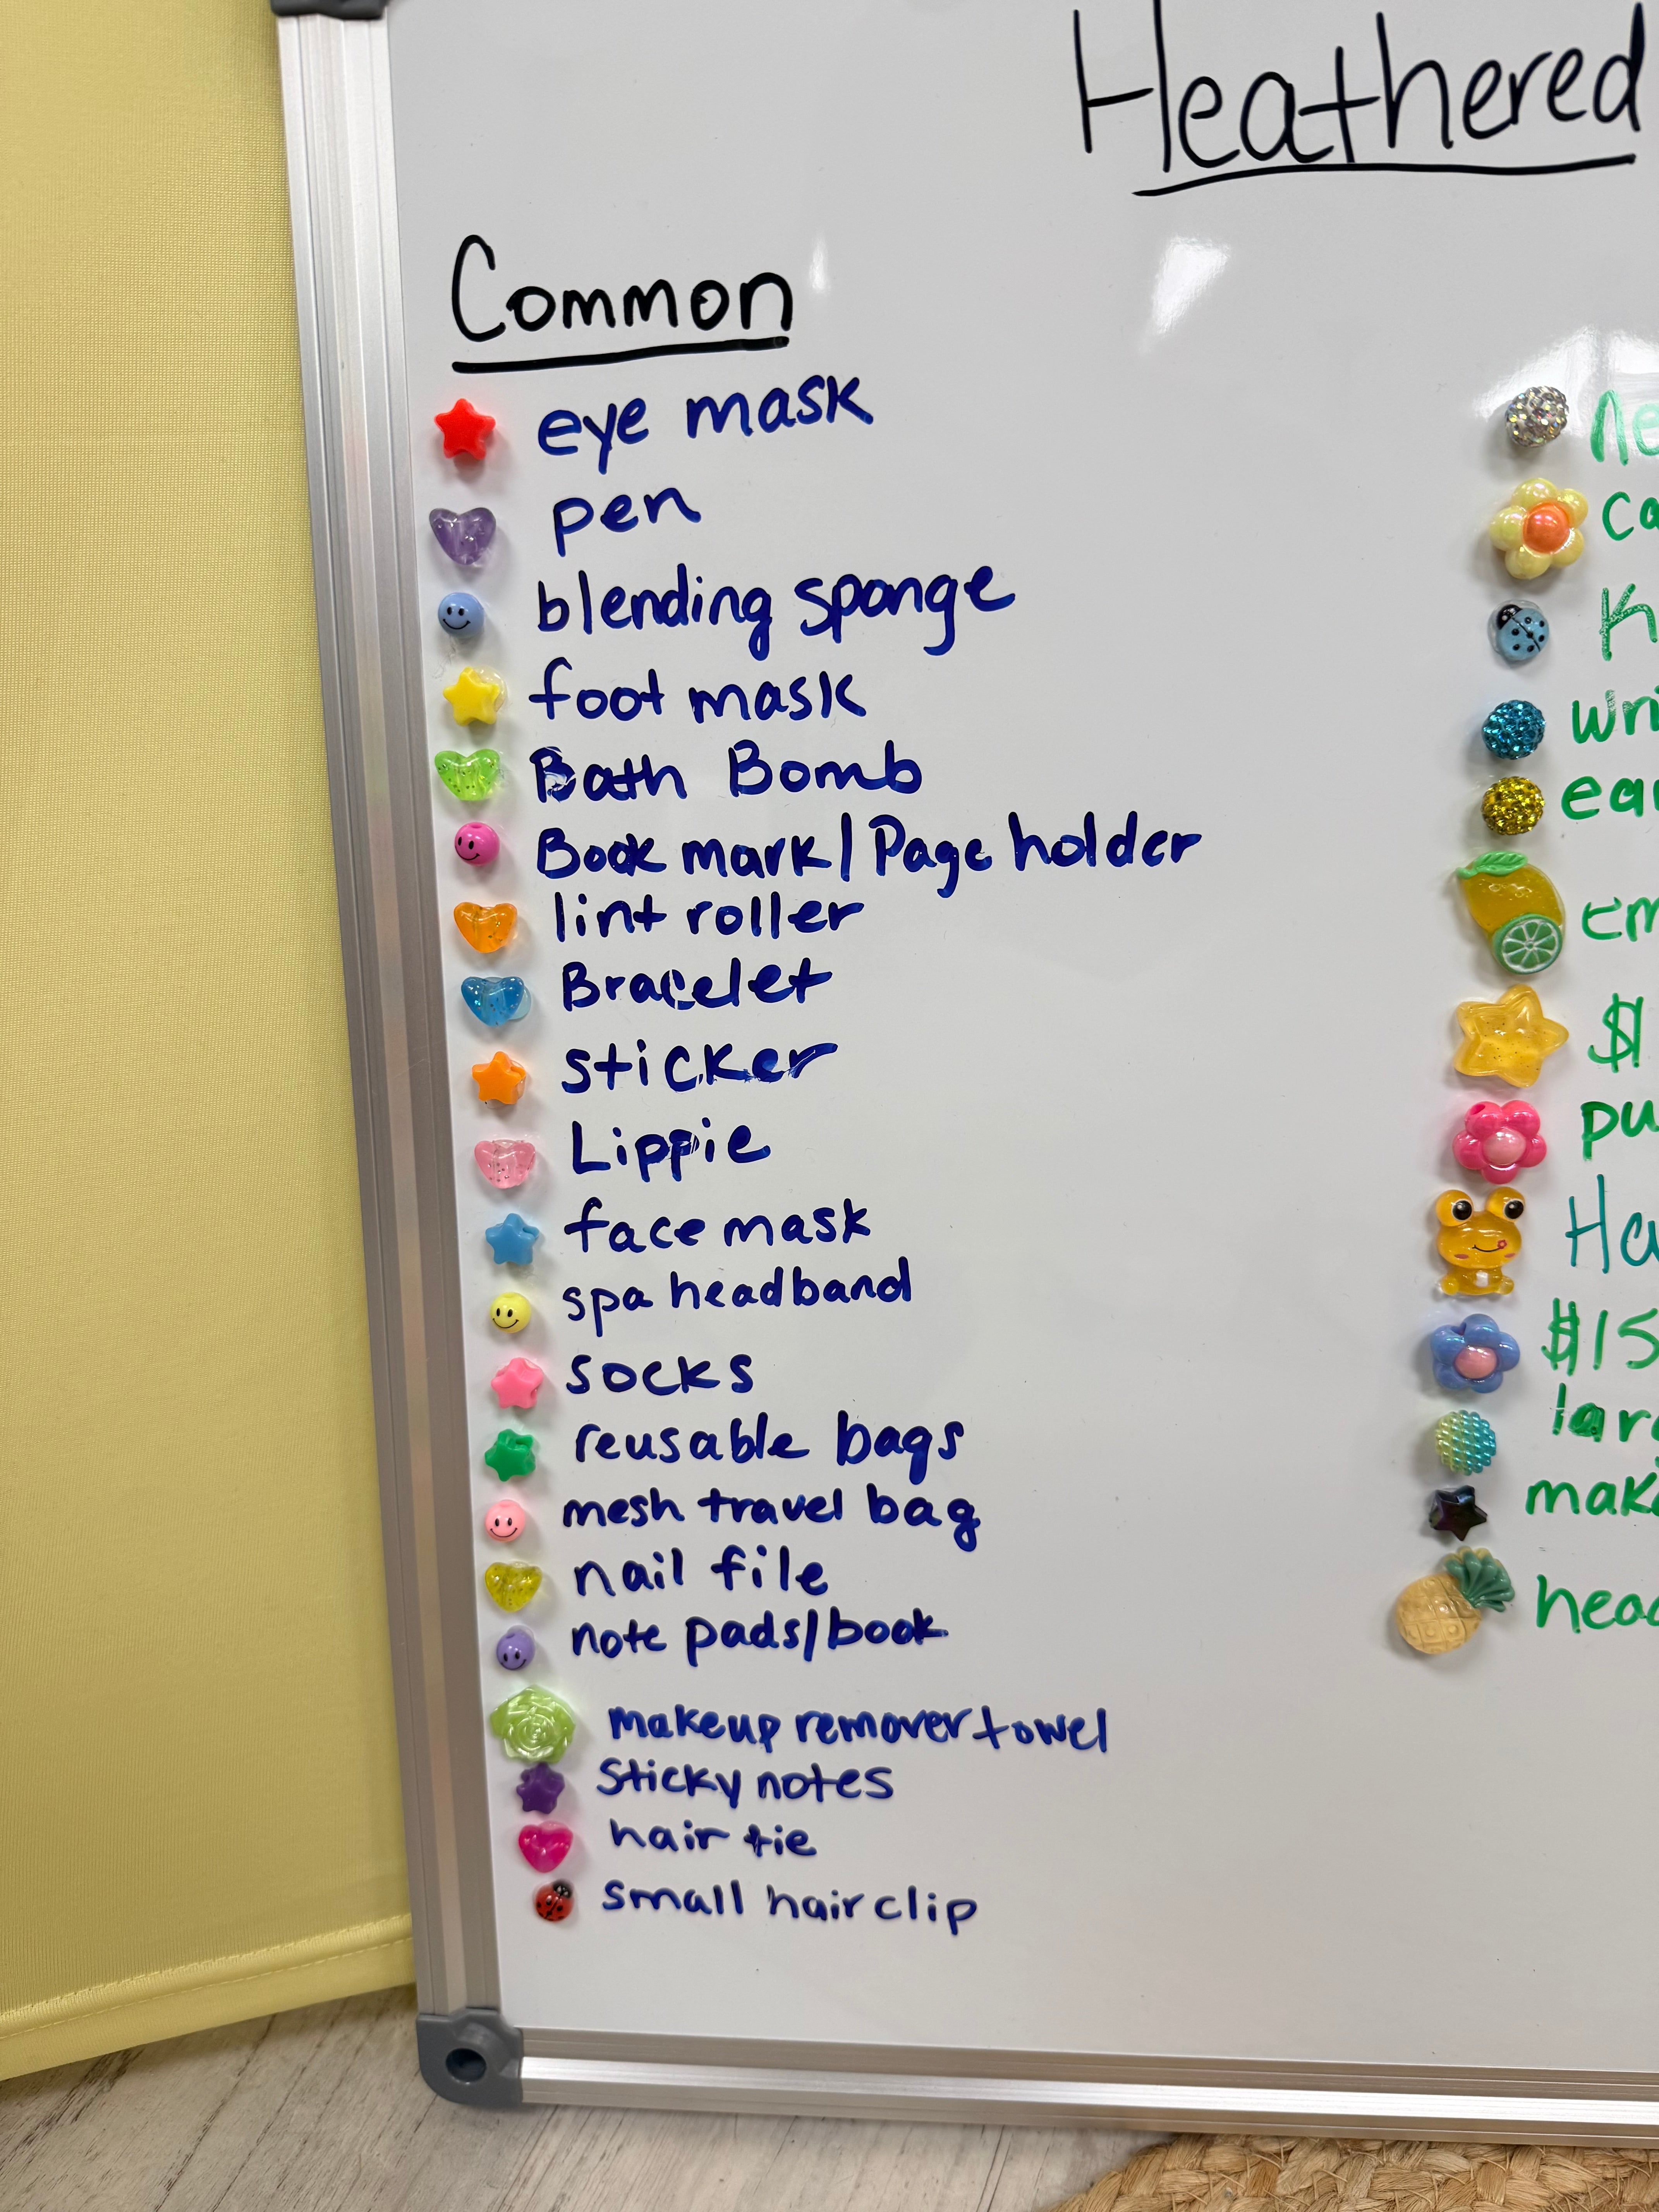 Heathered
Common
eye mask
pen
blending sponge
foot mask
Bath Bomb
Book mark/Page holder
lint roller
Bracelet
sticker
Lippie
face mask
spa headband
socks
reusable bags
mesh travel bag
nail file
note pads/book
makeup remover towel
Sticky notes
hair tie
small hair clip
$15